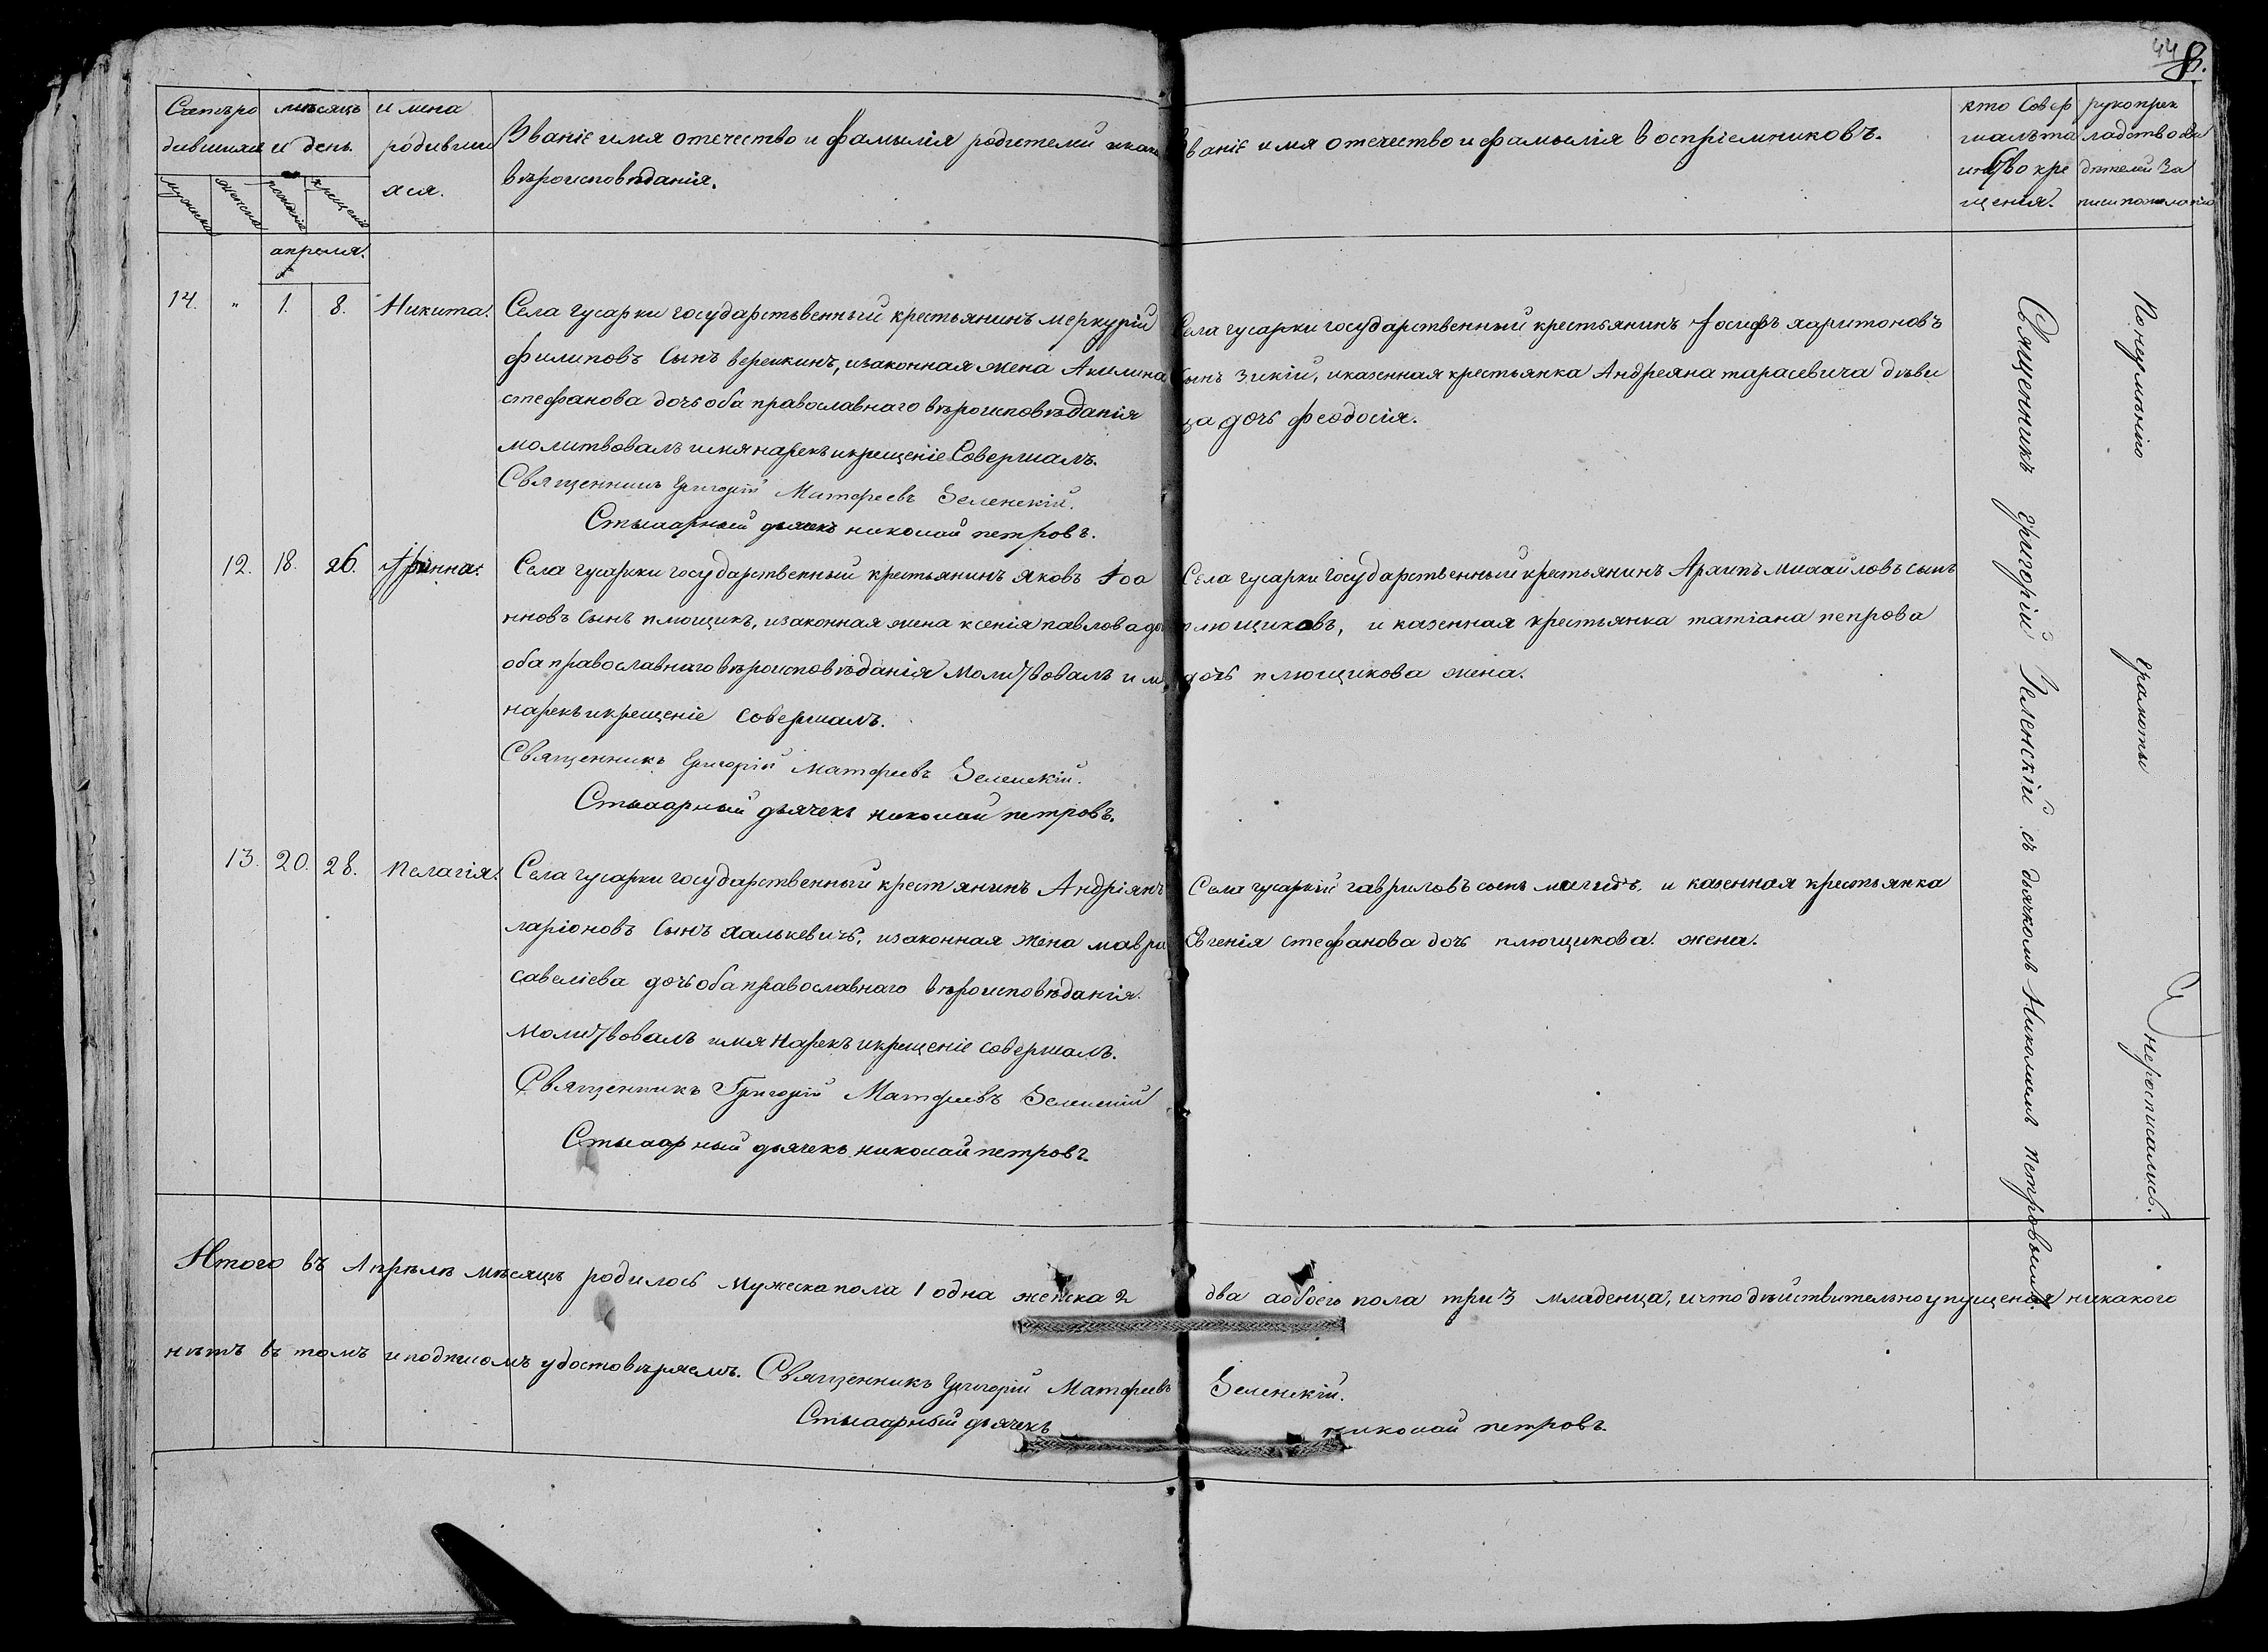 44
8.
Счетъ ро
дившихся
мужеска
женска
мѣсяцъ
и день
рожденія
крещенія
имена
родивши
хся.
Званіе имя отечество и фамилія родителей и како
вѣроисповѣданія.
Званіе имя отечество и фамылія воспріемниковъ.
кто совер
шалъ та
инство кре
щенія.
рукоприк
ладство сви
дѣтелей за
писи по желанію
апреля.
14. " 1. 8. Никита. Села гусарки государственный крестьянинъ меркурій
филиповъ сынъ верешкинъ, изаконная жена Акилина
стефанова дочь оба православнаго вѣроисповѣданія
молитвовалъ имя нарекъ икрещеніе Совершалъ.
Священникъ Григорій Матфеевъ Зеленскій.
Стыхарный дьячекъ николай петровъ.
Села гусарки государственный крестьянинъ Іосифъ харитоновъ
сынъ Зикій, иказенная крестьянка Андреяна тарасевича дѣви
ца дочь феодосія.
12. 18. 26. Иринна. Села гусарки государственный крестьянинъ яковъ Іоа
нновъ сынъ плющикъ, изаконная жена ксенія павлова до
оба православнаго вѣроисповѣданія молитвовалъ и м
нарекъ икрещеніе совершалъ.
Священникъ Григорій матфеевъ Зеленскій.
Стыхарный дьячекъ николай петровъ.
Села гусарки государственный крестьянинъ Архипъ михайловъ сынъ
плющиковъ, и казенная крестьянка татіана петрова
дочь плющикова жена.
13. 20. 28. Пелагія. Села гусарки государственный крестянинъ Андріянъ
ларіоновъ сынъ халькевичъ, изаконная жена мавра
савеліева дочь оба православнаго вѣроисповѣданія.
Молитвовалъ имя нарекъ икрещеніе совершалъ.
Священникъ Григорій Матфеевъ Зеленскій
Стыхарный дьячекъ николай петровъ.
Села гусаркій гавриловъ сынъ и казенная крестьянка
Евгенія стефанова дочь плющикова. жена.
Священникъ Григорій Зеленскій съ дьячкомъ Николаемъ Петровымъ
По неумѣнію грамоты неросписались.
Итого въ Апрѣлѣ мѣсяцѣ родилось мужеска пола 1 одна женска 2 два аобоего пола три 3 младенца, ичто дѣйствительно упущенія никакого
нѣтъ въ томъ и подписомъ удостовѣряемъ. Священникъ Григорій Матфеевъ Зеленскій.
Стыхарный дьячекъ николай петровъ.